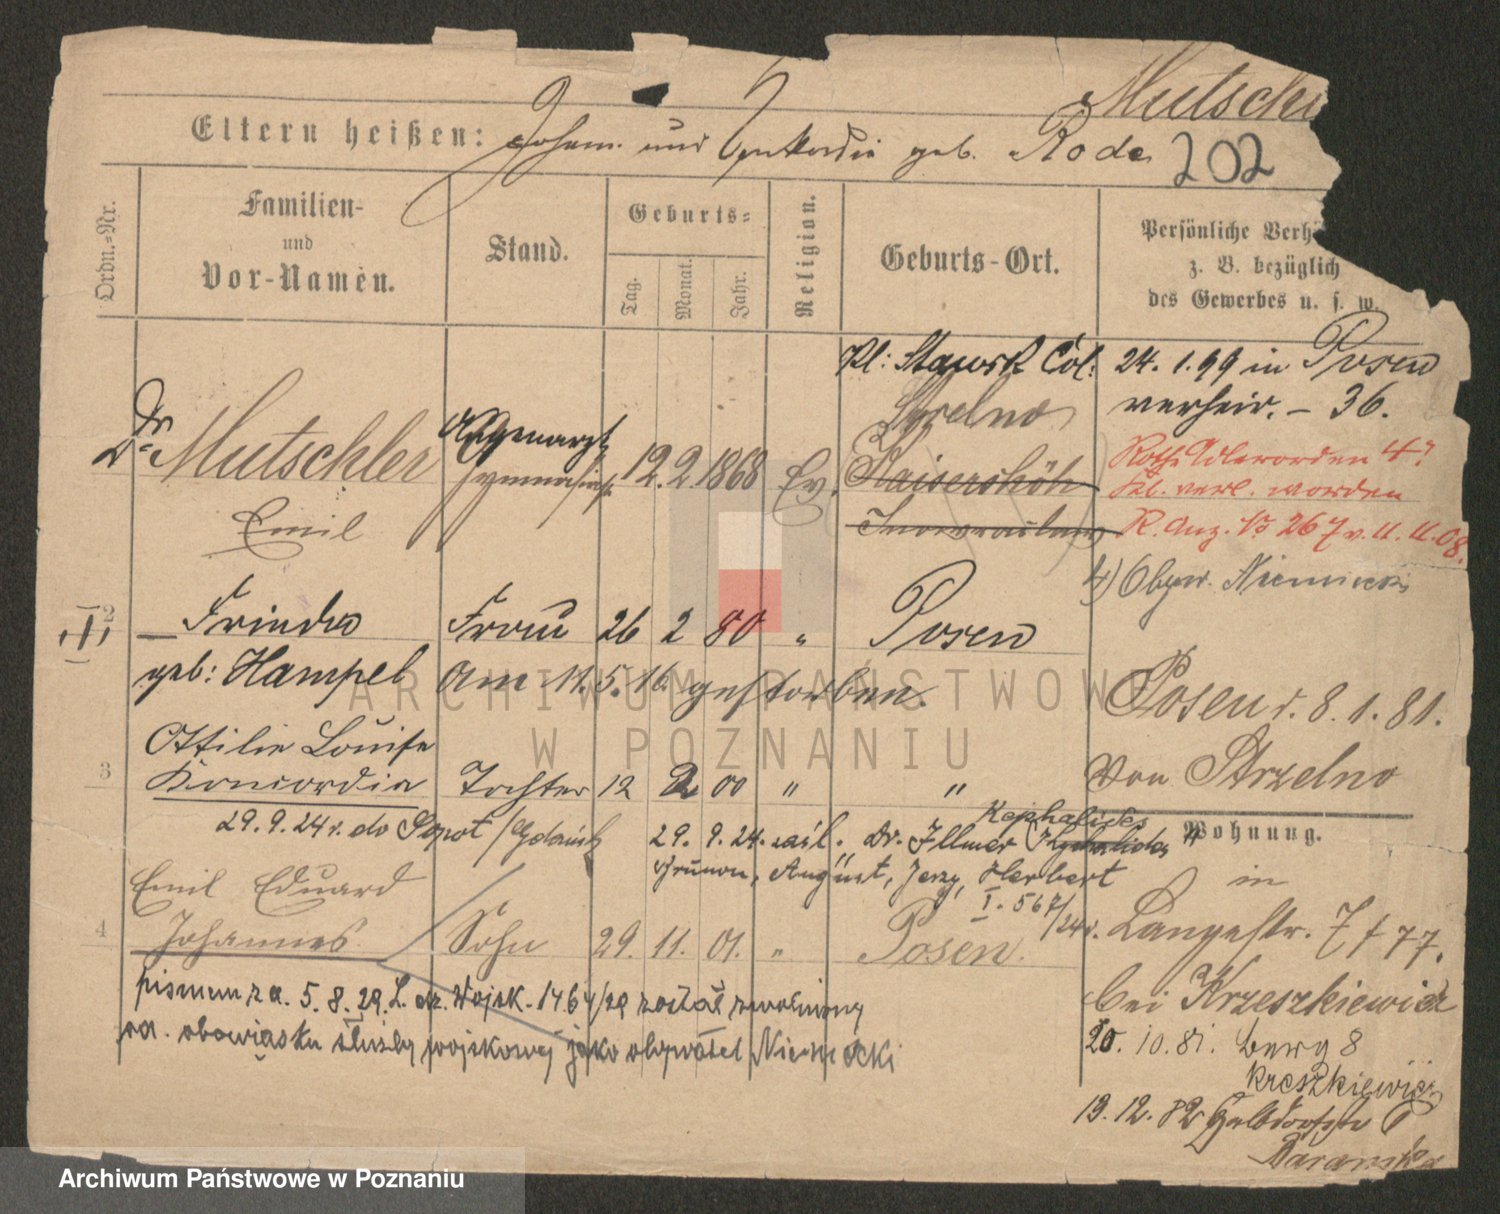 Mutschl
Eltern heißen: Johann und Konkordia geb. Rode 202
Ordn.=Nr.
Familien-
und
Vor-Namen.
Stand.
Geburts=
Tag.
Monat.
Jahr.
Religion.
Geburts-Ort.
Persönliche Verh
z. B. bezüglich
des Gewerbes u. s. w.
Kl: Stawsk Col:
Strelno
24. 1. 99 in Posen
verheir. – 36.
Dr Mutschler
Emil
Augenarzt
12. 2. 1868 Ev.
Kaisershöh
Inowrazlaw
Roth. Adlerorden 4?
Kl. verl. worden
R. Anz. No 267 v. 11. 11. 08.
Obyw. Niemiecki
2
Frieda Frau 26 2 80 " Posen
geb: Hampel Am 11. 5. 16. gestorben.
Posen v. 8. 1. 81.
von Strzelno
Ottilie Louise
3
Konkordia Tochter 12 2 00 " "
29. 9. 24 r. do Sopot / Gdańsk
29. 9. 24. Dr. Illmer
Kephalides
Brunon, August, Jerzy, Herbert
I. 567/24 r.
Wohnung.
in
Emil Eduard
4
Johannes Sohn 29. 11. 01. " Posen.
Langestr. 7 f 77.
bei Krzeszkiewicz
pismem z d. 5. 8. 29. L. dz. Wojsk. 1464/29 został zwolniony
od. obowiąsku służby wojskowej jako obywatel Niemiecki
20. 10. 81. Berg 8
Kreszkiewicz
13. 12. 82